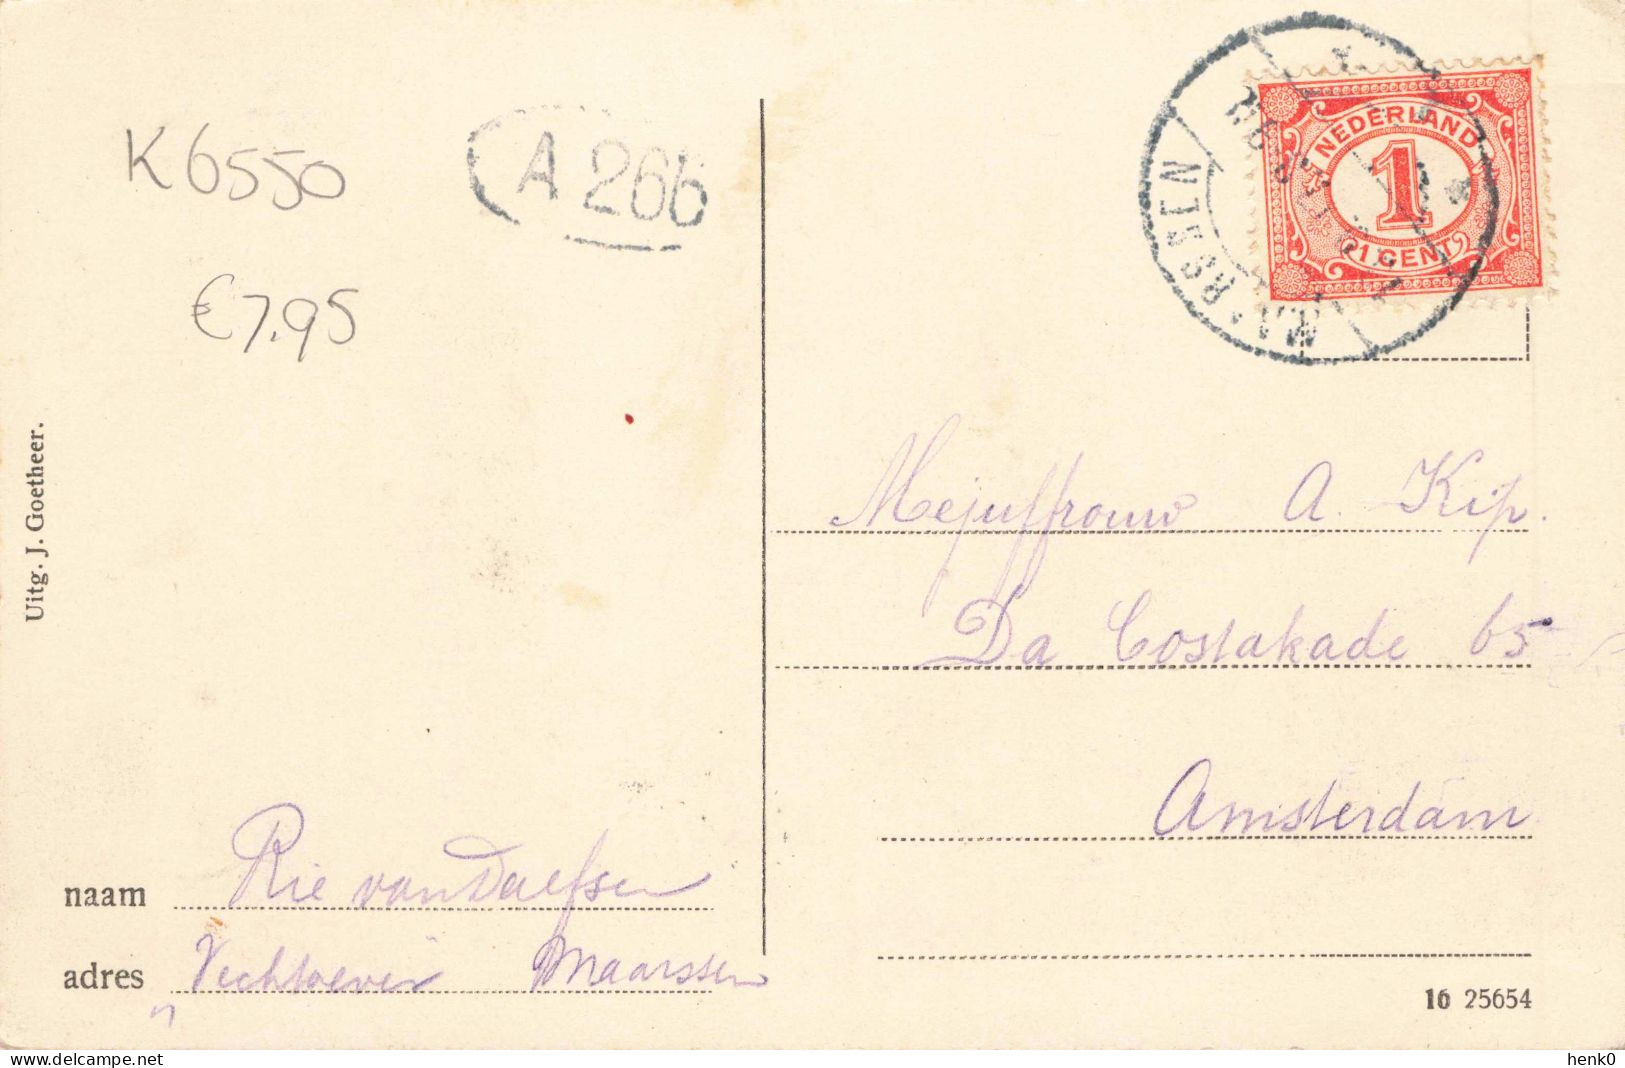 K 6550
€7,95
A 266
MAARSSEN
NEDERLAND
1
1 CENT
Uitg. J. Goetheer.
Mejuffrouw A. Kip.
Da Costakade 65
Amsterdam
naam Rie van Dalfsen
adres „Vechtoever" Maarssen
16 25654
delcampe.net
henk0